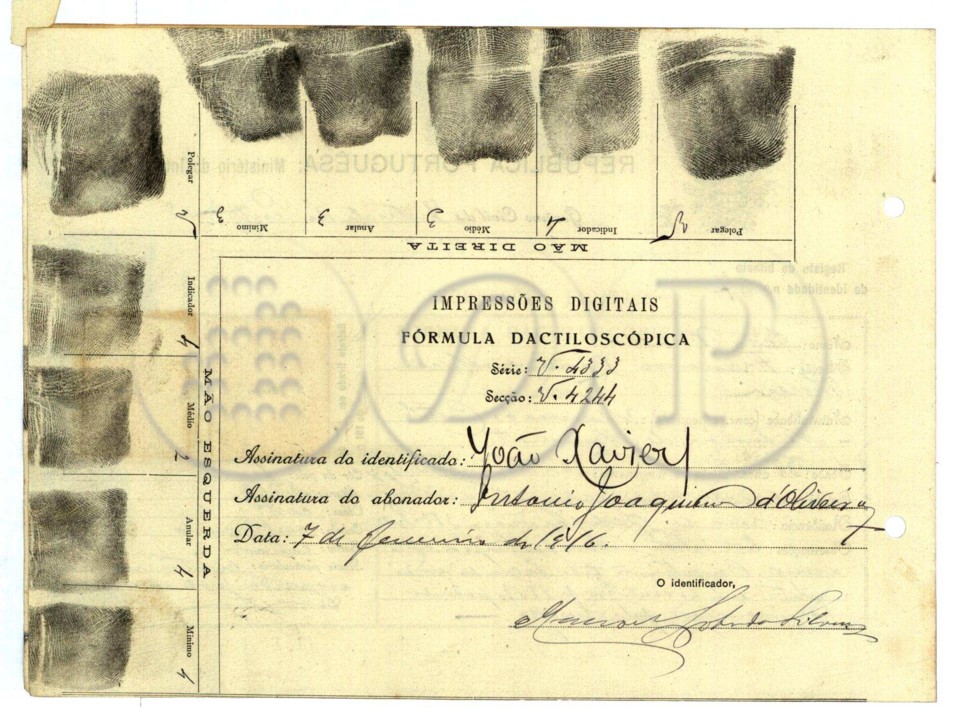 Polegar Indicador Médio Anular Mínimo
V 4 3 3 3
MÃO DIREITA
Polegar V
Indicador 4
Médio 2
Anular 4
Mínimo 4
MÃO ESQUERDA
IMPRESSÕES DIGITAIS
FÓRMULA DACTILOSCÓPICA
Série: V. 4333
Secção: V. 4244
Assinatura do identificado: João Xavier
Assinatura do abonador: Antonio Joaquim d'Oliveira
Data: 7 de fevereiro de 1916.
O identificador,
da Silva
REPÚBLICA PORTUGUESA: Ministério do
Registo do bilhete
de identidade n.º